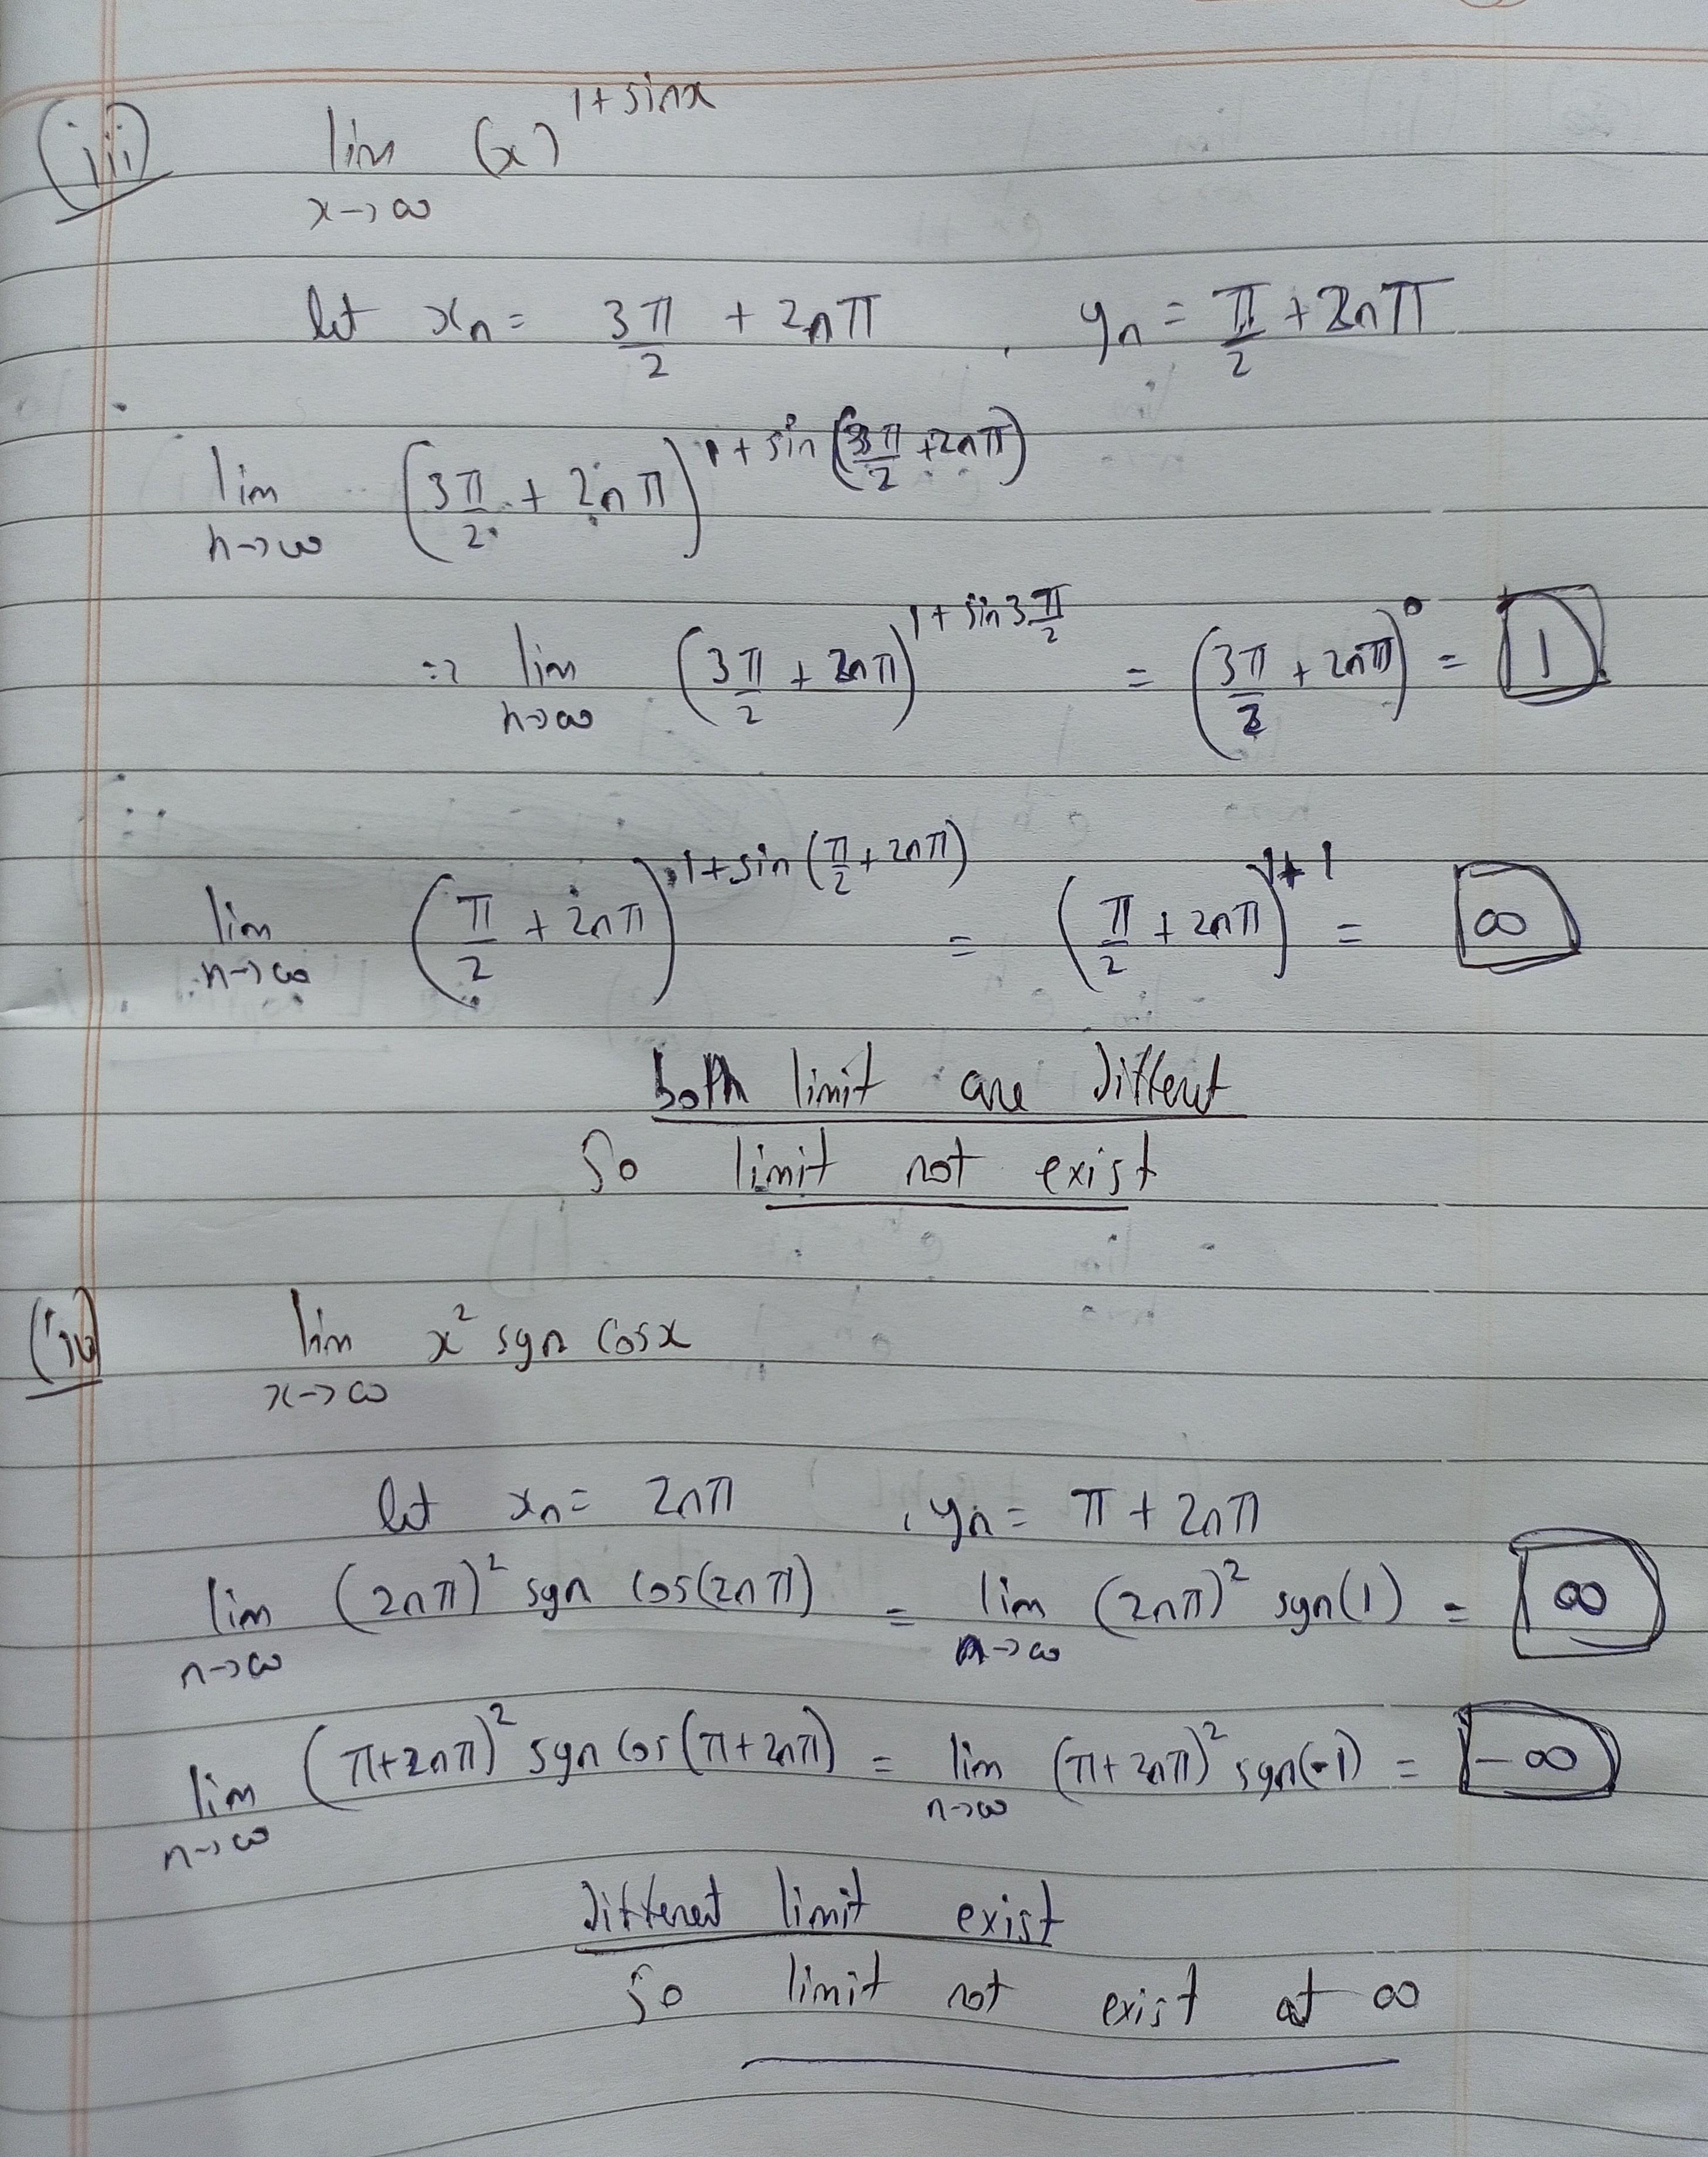 (iii) lim x→∞ (x)^(1+sinx)
let xn = 3π/2 + 2nπ , yn = π/2 + 2nπ
lim n→∞ (3π/2 + 2nπ)^(1+sin(3π/2 + 2nπ))
=> lim n→∞ (3π/2 + 2nπ)^(1+sin3π/2) = (3π/2 + 2nπ)^0 = 1
lim n→∞ (π/2 + 2nπ)^(1+sin(π/2 + 2nπ)) = (π/2 + 2nπ)^(1+1) = ∞
both limit are different
So limit not exist
(iv) lim x→∞ x² sgn cosx
let xn = 2nπ , yn = π + 2nπ
lim n→∞ (2nπ)² sgn cos(2nπ) = lim n→∞ (2nπ)² sgn(1) = ∞
lim n→∞ (π+2nπ)² sgn cos(π+2nπ) = lim n→∞ (π+2nπ)² sgn(-1) = -∞
different limit exist
So limit not exist at ∞